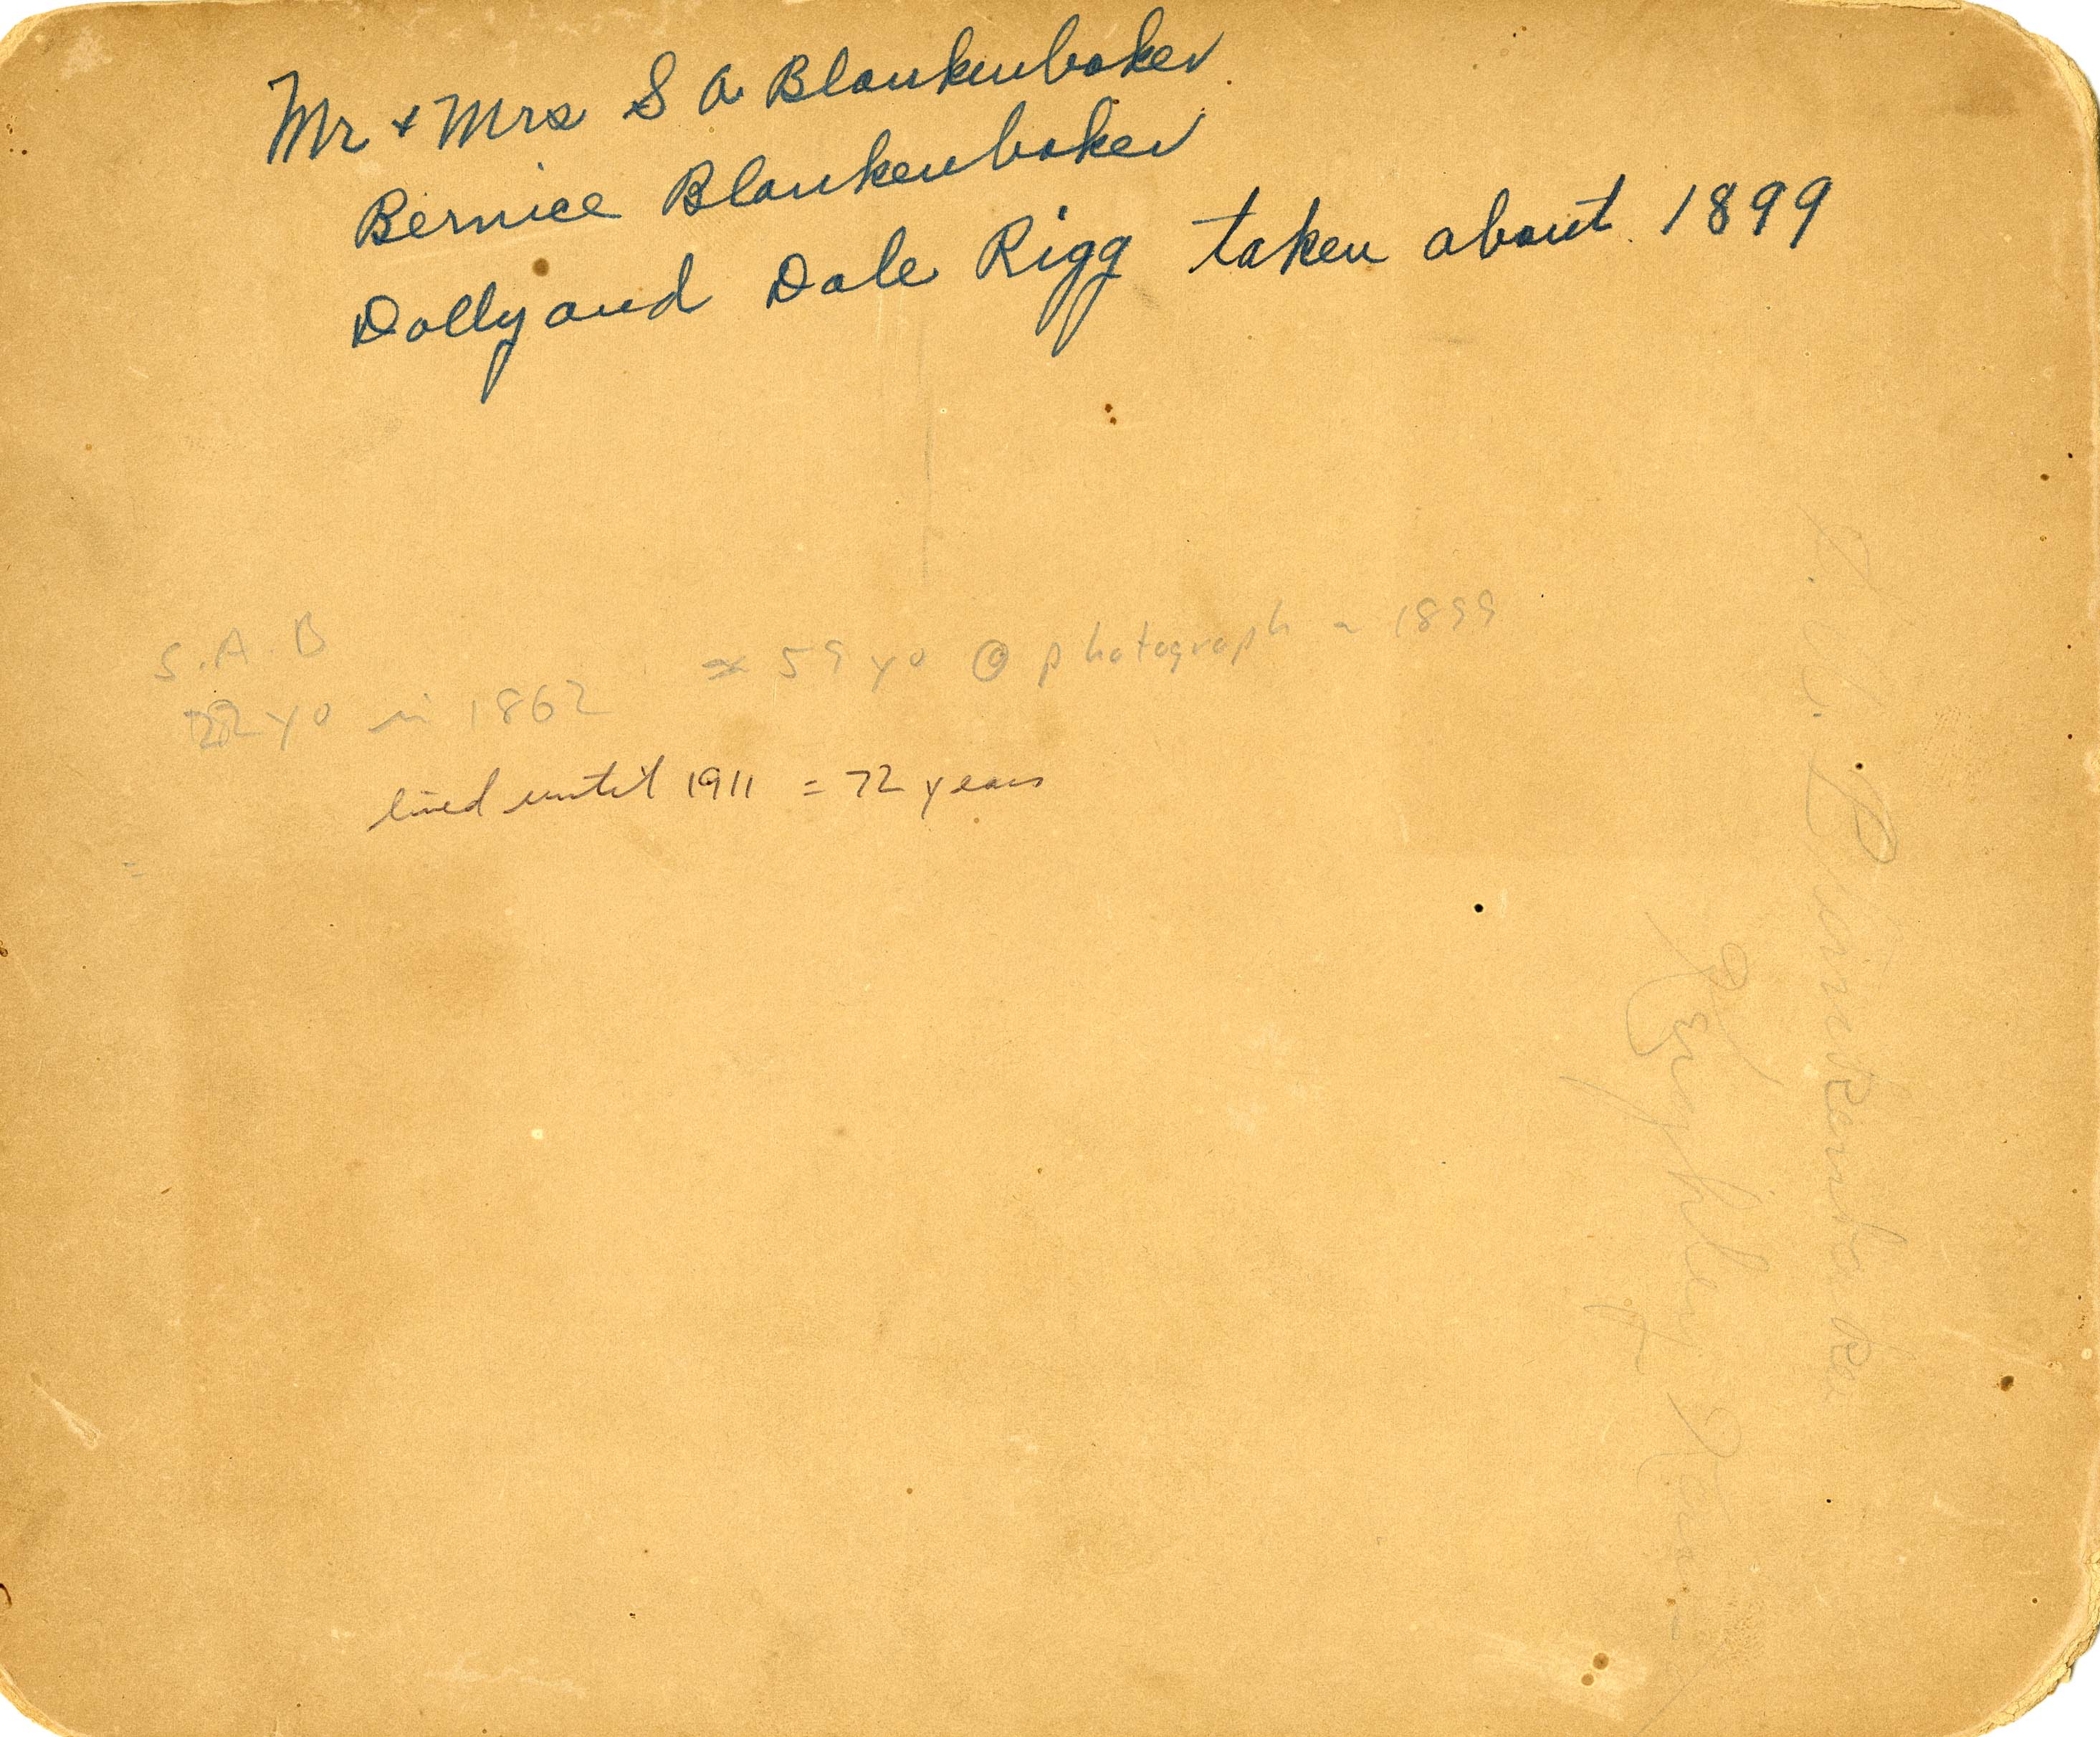 Mr + Mrs S A Blankenbaker
Bernice Blankenbaker
Dolly and Dale Rigg taken about 1899
S.A.B
22 yo in 1862 ≈ 59 yo @ photograph ~ 1899
lived until 1911 = 72 years